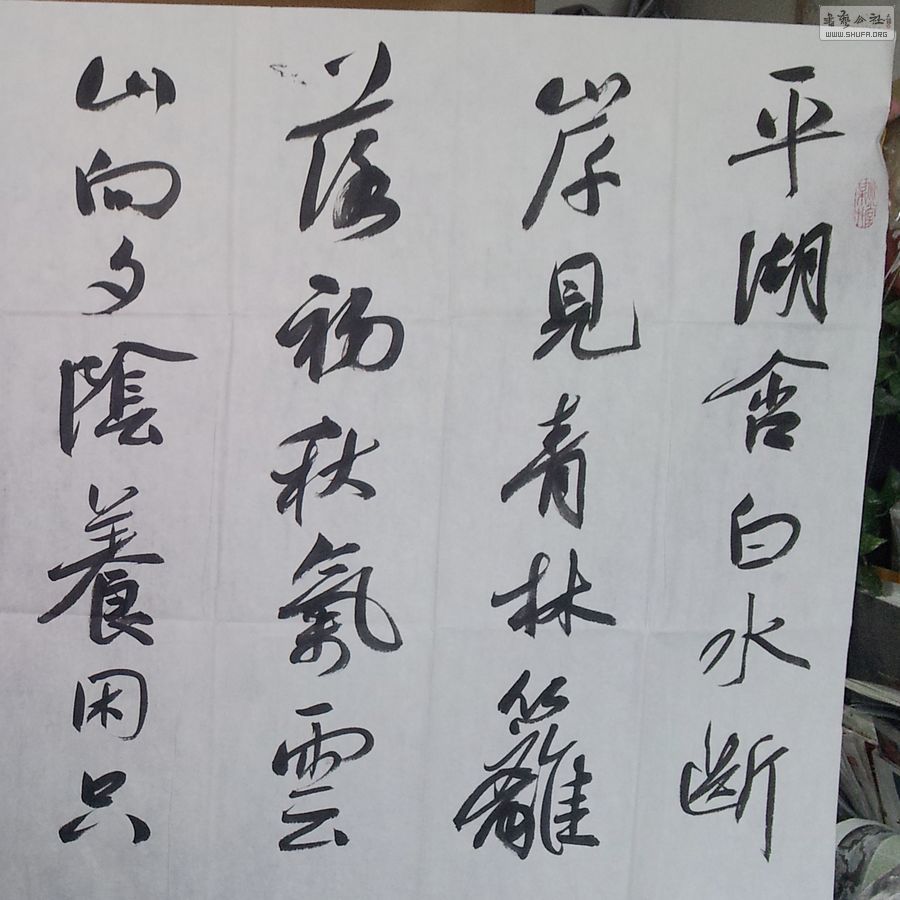 平湖含白水斷
岸見青林籬
落初秋氣雲
山向夕陰養困只
書藝公社
WWW.SHUFA.ORG